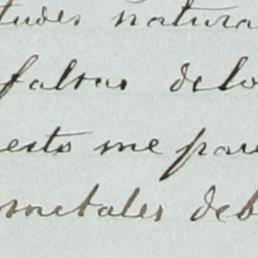 tudes natura
falsas delo
esto me pare
metales deb